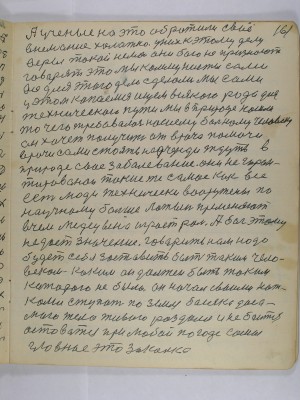 161
А ученые на это обратили своё
внимание холатно. у них к этому делу
веры такой нема они бога не признают
говорят это мы коммунисты сами
для этого дела сделали мы сами
у этом копаемся ищем всякого рода для
технически пути мы в природе нашли
то чего требовалось нашему больному человеку
он хочет получить от врача помощи
врачи сами стоять на очереди ждуть в
природе свое заболевание они не гаран-
тированы такие же самое как все
есть люди технически вооружены по
научному больше
в чем медецина играет рол. А бог этому
не дает значение. говорить нам надо
будет себя заставить быть таким чело-
веком каким он должен быть таким
которого не было он начал своими нож-
ками ступать по земле
много тела живого раздели и не быть
оставаться при любой погоде самое
главное это закалка